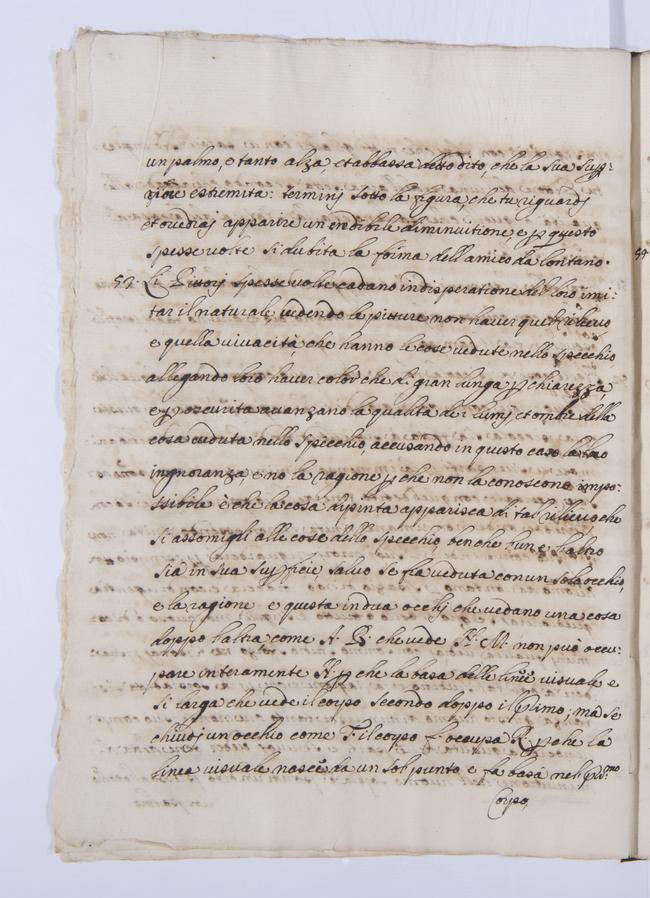 un palmo, e tanto alza, et abbassa detto dito, che la sua sup:
riore estremita: terminj sotto la figura che tu riguardj
et vedraj apparire un endibile diminuitione e p questo
spesse volte si dubita la forma dell amico da lontano.
53. Li Pittorj spesse volte cadano in disperatione del loro imi:
tar il naturale, vedendo le pitture non haver quel rilievo
e quella vivacità, che hanno le cose vedute nello specchio,
allegando loro haver colorj che di gran lunga p chiarezza
e p oscurita avanzano la qualita de i lumj et ombre della
cosa veduta nello specchio, accusando in questo caso la loro
ingnoranza, e no la ragione p che non la conoscono impo:
ssibile è che la cosa dipinta apparisca di tal rilievo che
si assomigli alle cose dello specchio, benche l'un e l'altro
sia in sua sup ficie, salvo se fia veduta con un solo occhio,
e la ragione e questa in dua occhij che vedano una cosa
doppo l altra come A. B. che vede N. M. non può occu:
pare interamente N. p che la basa delle linee visuale e
si larga che vede il corpo secondo doppo il primo; ma se
chiudj un occhio come F il corpo F occupa R. p che la
linea visuale nasce da un sol punto e fa basa nel pr.mo
Corpo,